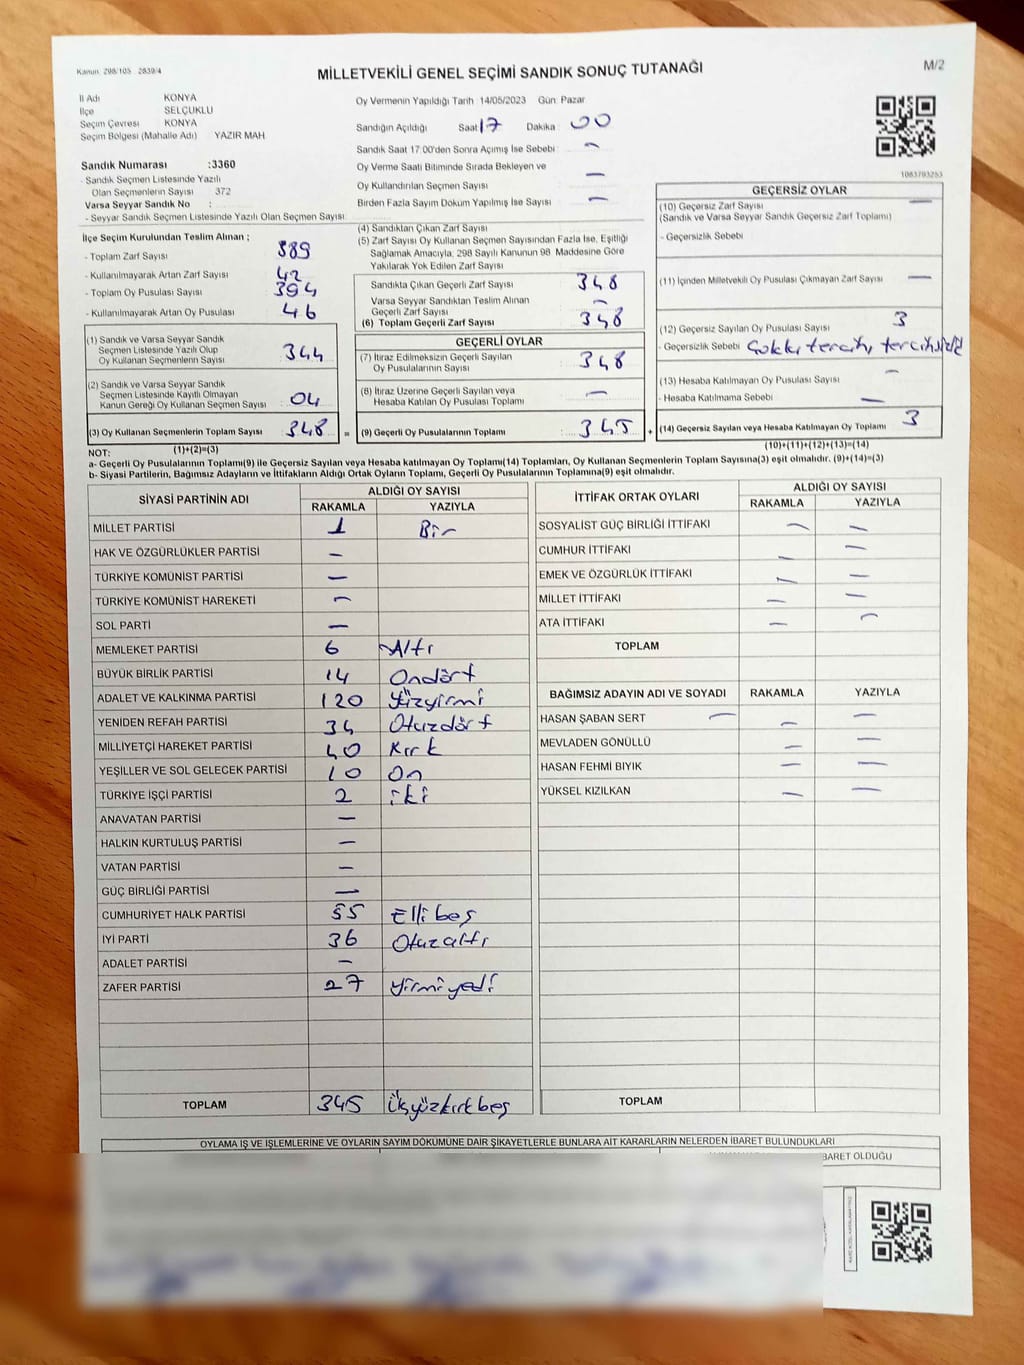 Kanun: 298/105 2839/4
MİLLETVEKİLİ GENEL SEÇİMİ SANDIK SONUÇ TUTANAĞI
M/2
İl Adı KONYA
İlçe SELÇUKLU
Seçim Çevresi KONYA
Seçim Bölgesi (Mahalle Adı) YAZIR MAH
Sandık Numarası :3360
- Sandık Seçmen Listesinde Yazılı
Olan Seçmenlerin Sayısı 372
Varsa Seyyar Sandık No :
- Seyyar Sandık Seçmen Listesinde Yazılı Olan Seçmen Sayısı:
Oy Vermenin Yapıldığı Tarih 14/05/2023 Gün: Pazar
Sandığın Açıldığı Saat 17 Dakika 00
Sandık Saat 17:00'den Sonra Açımış İse Sebebi —
Oy Verme Saati Bitiminde Sırada Bekleyen ve
Oy Kullandırılan Seçmen Sayısı —
Birden Fazla Sayım Döküm Yapılmış İse Sayısı —
1083793253
İlçe Seçim Kurulundan Teslim Alınan ;
- Toplam Zarf Sayısı 389
- Kullanılmayarak Artan Zarf Sayısı 42
- Toplam Oy Pusulası Sayısı 394
- Kullanılmayarak Artan Oy Pusulası 46
(1) Sandık ve Varsa Seyyar Sandık
Seçmen Listesinde Yazılı Olup
Oy Kullanan Seçmenlerin Sayısı 344
(2) Sandık ve Varsa Seyyar Sandık
Seçmen Listesinde Kayıtlı Olmayan
Kanun Gereği Oy Kullanan Seçmen Sayısı 04
(3) Oy Kullanan Seçmenlerin Toplam Sayısı 348 =
(4) Sandıktan Çıkan Zarf Sayısı
(5) Zarf Sayısı Oy Kullanan Seçmen Sayısından Fazla İse, Eşitliği
Sağlamak Amacıyla, 298 Sayılı Kanunun 98 Maddesine Göre
Yakılarak Yok Edilen Zarf Sayısı
Sandıkta Çıkan Geçerli Zarf Sayısı 348
Varsa Seyyar Sandıktan Teslim Alınan
Geçerli Zarf Sayısı —
(6) Toplam Geçerli Zarf Sayısı 348
GEÇERLİ OYLAR
(7) İtiraz Edilmeksizin Geçerli Sayılan
Oy Pusulalarının Sayısı 348
(8) İtiraz Üzerine Geçerli Sayılan veya
Hesaba Katılan Oy Pusulası Toplamı —
(9) Geçerli Oy Pusulalarının Toplamı 345 +
GEÇERSİZ OYLAR
(10) Geçersiz Zarf Sayısı —
(Sandık ve Varsa Seyyar Sandık Geçersiz Zarf Toplamı)
- Geçersizlik Sebebi
(11) İçinden Milletvekili Oy Pusulası Çıkmayan Zarf Sayısı —
(12) Geçersiz Sayılan Oy Pusulası Sayısı 3
- Geçersizlik Sebebi
(13) Hesaba Katılmayan Oy Pusulası Sayısı —
- Hesaba Katılmama Sebebi —
(14) Geçersiz Sayılan veya Hesaba Katılmayan Oy Toplamı 3
NOT: (1)+(2)=(3) (10)+(11)+(12)+(13)=(14)
a- Geçerli Oy Pusulalarının Toplamı(9) ile Geçersiz Sayılan veya Hesaba katılmayan Oy Toplamı(14) Toplamları, Oy Kullanan Seçmenlerin Toplam Sayısına(3) eşit olmalıdır. (9)+(14)=(3)
b- Siyasi Partilerin, Bağımsız Adayların ve İttifakların Aldığı Ortak Oyların Toplamı, Geçerli Oy Pusulalarının Toplamına(9) eşit olmalıdır.
SİYASİ PARTİNİN ADI ALDIĞI OY SAYISI
RAKAMLA YAZIYLA
MİLLET PARTİSİ 1 Bir
HAK VE ÖZGÜRLÜKLER PARTİSİ —
TÜRKİYE KOMÜNİST PARTİSİ —
TÜRKİYE KOMÜNİST HAREKETİ —
SOL PARTİ —
MEMLEKET PARTİSİ 6 Altı
BÜYÜK BİRLİK PARTİSİ 14 Ondört
ADALET VE KALKINMA PARTİSİ 120 Yüzyirmi
YENİDEN REFAH PARTİSİ 34 Otuzdört
MİLLİYETÇİ HAREKET PARTİSİ 40 Kırk
YEŞİLLER VE SOL GELECEK PARTİSİ 10 On
TÜRKİYE İŞÇİ PARTİSİ 2 iki
ANAVATAN PARTİSİ —
HALKIN KURTULUŞ PARTİSİ —
VATAN PARTİSİ —
GÜÇ BİRLİĞİ PARTİSİ —
CUMHURİYET HALK PARTİSİ 55 Ellibeş
İYİ PARTİ 36 Otuzaltı
ADALET PARTİSİ —
ZAFER PARTİSİ 27 Yirmiyedi
TOPLAM 345 Üçyüzkırkbeş
İTTİFAK ORTAK OYLARI ALDIĞI OY SAYISI
RAKAMLA YAZIYLA
SOSYALİST GÜÇ BİRLİĞİ İTTİFAKI — —
CUMHUR İTTİFAKI — —
EMEK VE ÖZGÜRLÜK İTTİFAKI — —
MİLLET İTTİFAKI — —
ATA İTTİFAKI — —
TOPLAM
BAĞIMSIZ ADAYIN ADI VE SOYADI RAKAMLA YAZIYLA
HASAN ŞABAN SERT — — —
MEVLADEN GÖNÜLLÜ — —
HASAN FEHMİ BIYIK — —
YÜKSEL KIZILKAN — —
TOPLAM
OYLAMA İŞ VE İŞLEMLERİNE VE OYLARIN SAYIM DÖKÜMÜNE DAİR ŞİKAYETLERLE BUNLARA AİT KARARLARIN NELERDEN İBARET BULUNDUKLARI
BARET OLDUĞU